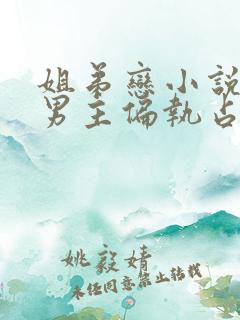 姐弟戀小說
男主偏執占
姚毅婧
未任同意禁止轉載